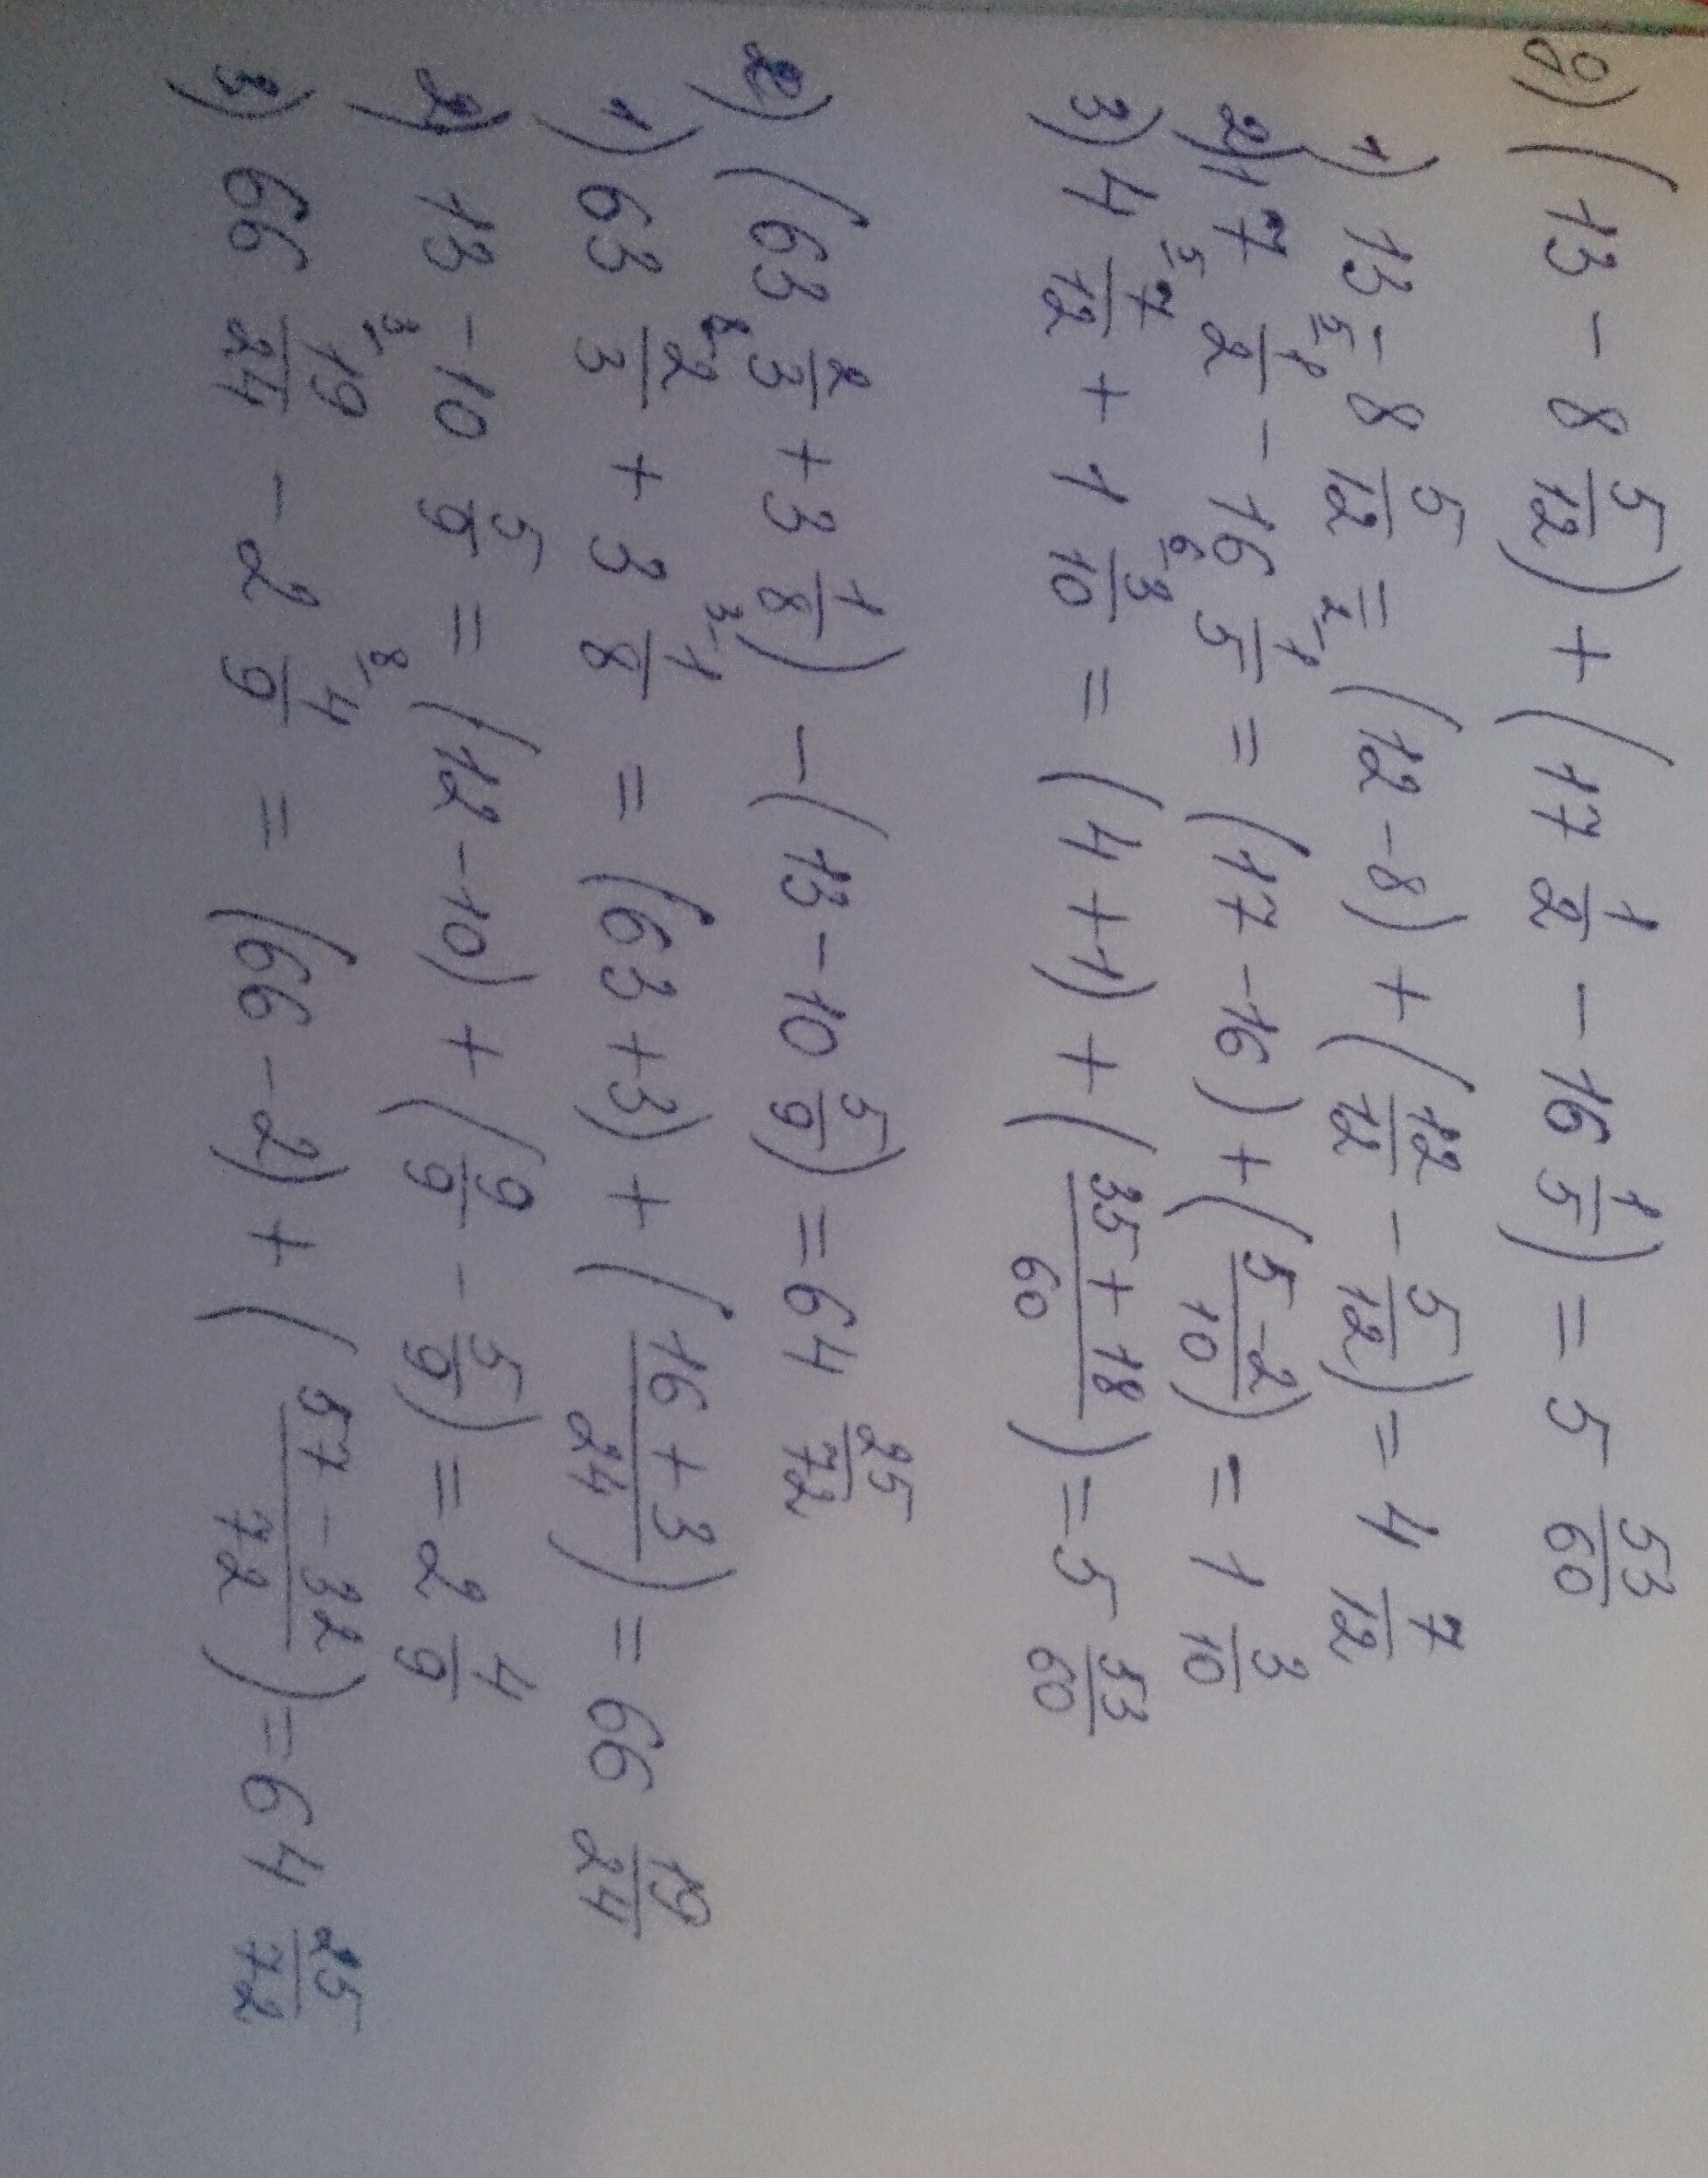 д) (13 - 8 5/12) + (17 1/2 - 16 1/5) = 5 53/60
1) 13 - 8 5/12 = (12 - 8) + (12/12 - 5/12) = 4 7/12
2) 17 1/2 - 16 1/5 = (17 - 16) + (5 - 2 / 10) = 1 3/10
3) 4 7/12 + 1 3/10 = (4 + 1) + (35 + 18 / 60) = 5 53/60
е) (63 2/3 + 3 1/8) - (13 - 10 5/9) = 64 25/72
1) 63 2/3 + 3 1/8 = (63 + 3) + (16 + 3 / 24) = 66 19/24
2) 13 - 10 5/9 = (12 - 10) + (9/9 - 5/9) = 2 4/9
3) 66 19/24 - 2 4/9 = (66 - 2) + (57 - 32 / 72) = 64 25/72